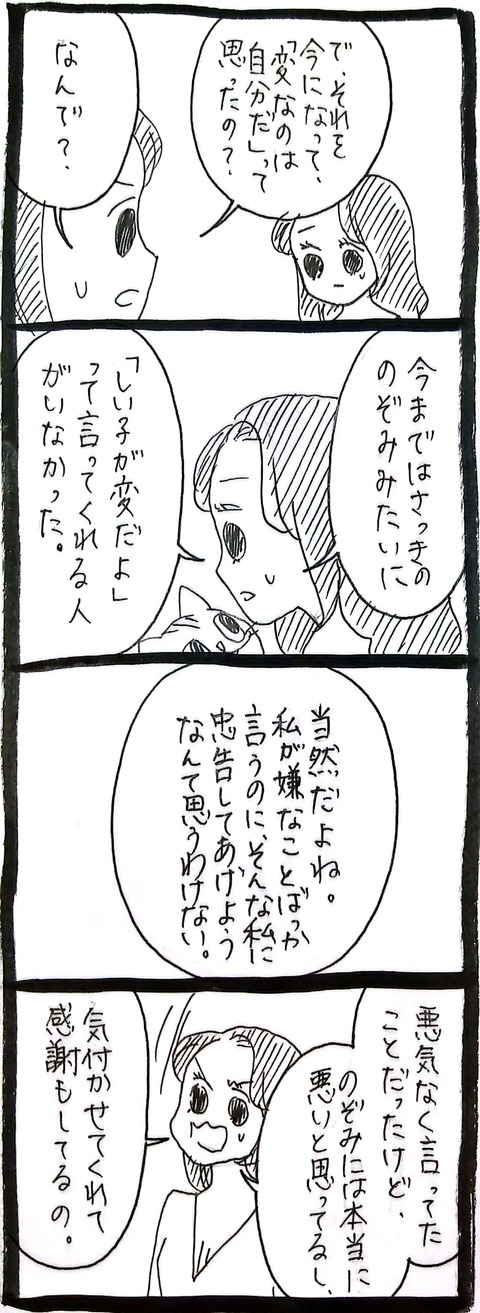 で、それを
今になって、
「変なのは
自分だ」って
思ったの？
なんで？
今まではさっきの
のぞみみたいに
「しい子が変だよ」
って言ってくれる人
がいなかった。
当然だよね。
私が嫌なことばっか
言うのに、そんな私に
忠告してあげよう
なんて思うわけない。
悪気なく言ってた
ことだったけど、
のぞみには本当に
悪いと思ってるし、
気付かせてくれて
感謝もしてるの。